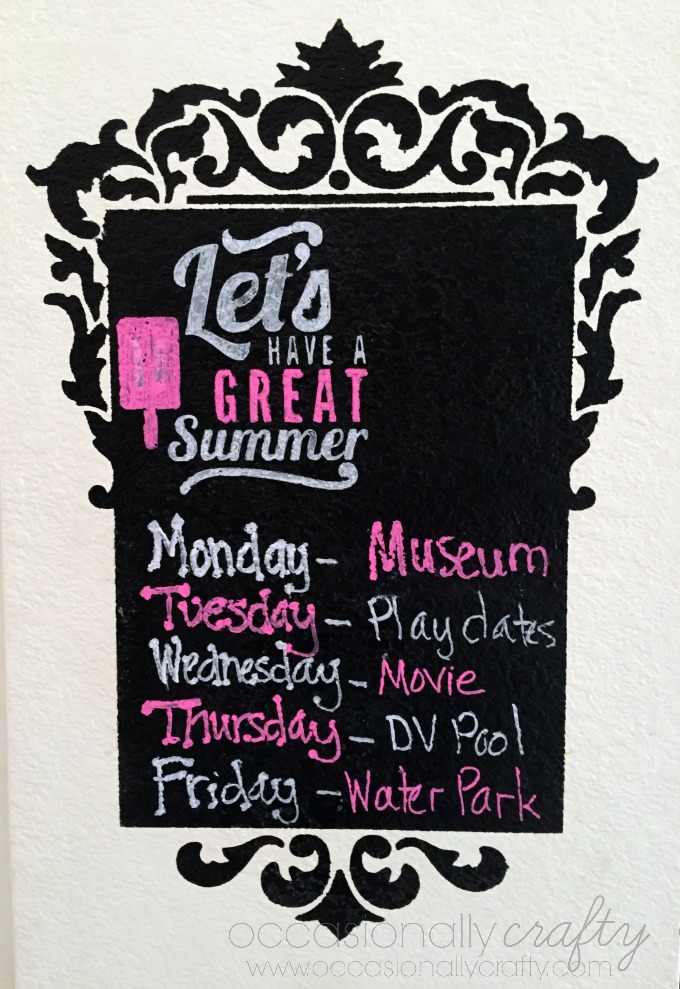 Let's
HAVE A
GREAT
Summer
Monday - Museum
Tuesday - Playdates
Wednesday - Movie
Thursday - DV Pool
Friday - Water Park
occasionallycrafty
www.occasionallycrafty.com